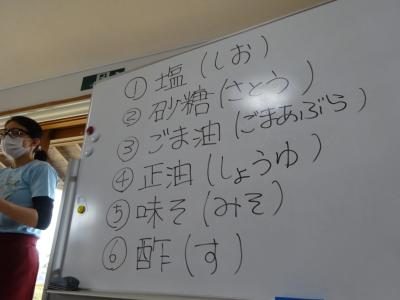 ① 塩 (しお)
② 砂糖 (さとう)
③ ごま油 (ごまあぶら)
④ 正油 (しょうゆ)
⑤ 味そ (みそ)
⑥ 酢 (す)